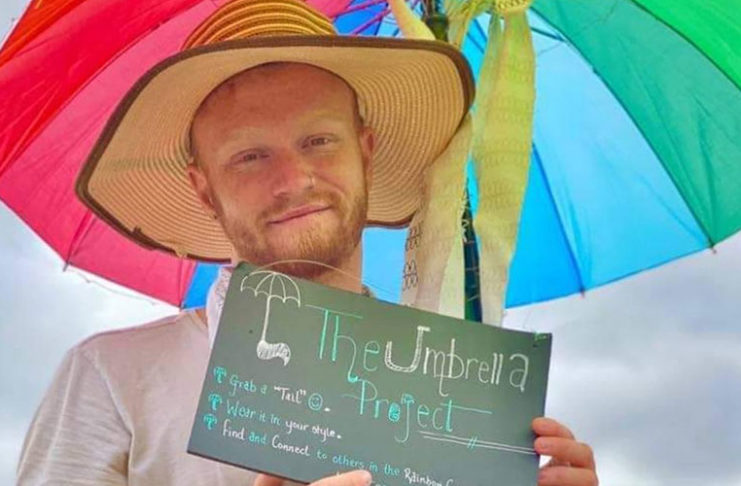 The Umbrella
Project
Grab a "Tail" ☺.
Wear it in your style.
Find and Connect to others in the Rainbow